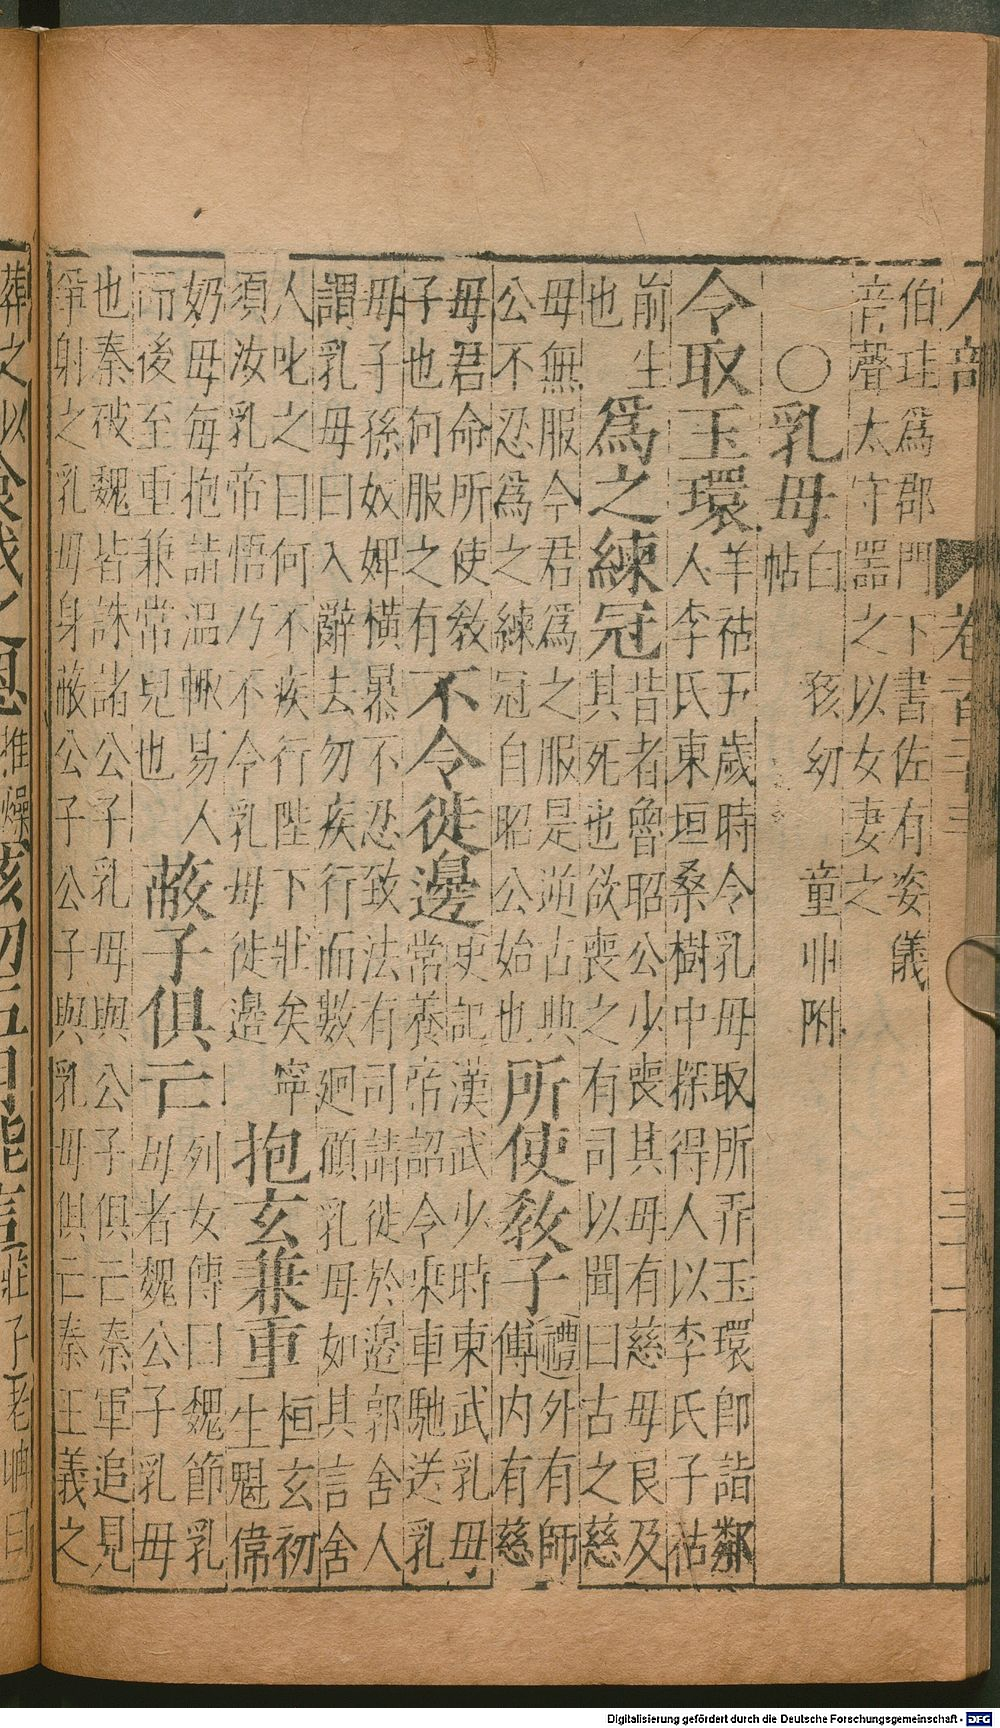 人部
伯珪爲郡門下書佐有姿儀
音聲太守器之以女妻之
○乳母 白帖 孩幼 童丱附
令取玉環 羊祜五歲時令乳母取所弄玉環卽詣鄰
人李氏東垣桑樹中探得人以李氏子祜
前生
也 爲之練冠 昔者魯昭公少喪其母有慈母良及
其死也欲喪之有司以聞曰古之慈
母無服今君爲之服是逆古典
公不忍爲之練冠自昭公始也 所使敎子 禮外有師
傅内有慈
母君命所使敎
子也何服之有 不令徙邊 史記漢武少時東武乳母
常養帝詔令乘車馳送乳
母子孫奴婢橫暴不忍致法有司請徙於邊郭舍人
謂乳母曰入辭去勿疾行而數廻顧乳母如其言舍
人叱之曰何不疾行陛下壯矣寧
須汝乳帝悟乃不令乳母徙邊 抱玄兼重 桓玄初
生魁偉
奶母每抱詣温輒易人
而後至重兼常兒也 蔽子俱亡 列女傳曰魏節乳
母者魏公子乳母
也秦破魏皆誅諸公子乳母與公子俱亡秦軍追見
爭射之乳母身蔽公子公子與乳母俱亡秦王義之
葬之以 孩幼五月能言 莊子老聃曰
Digitalisierung gefördert durch die Deutsche Forschungsgemeinschaft - DFG